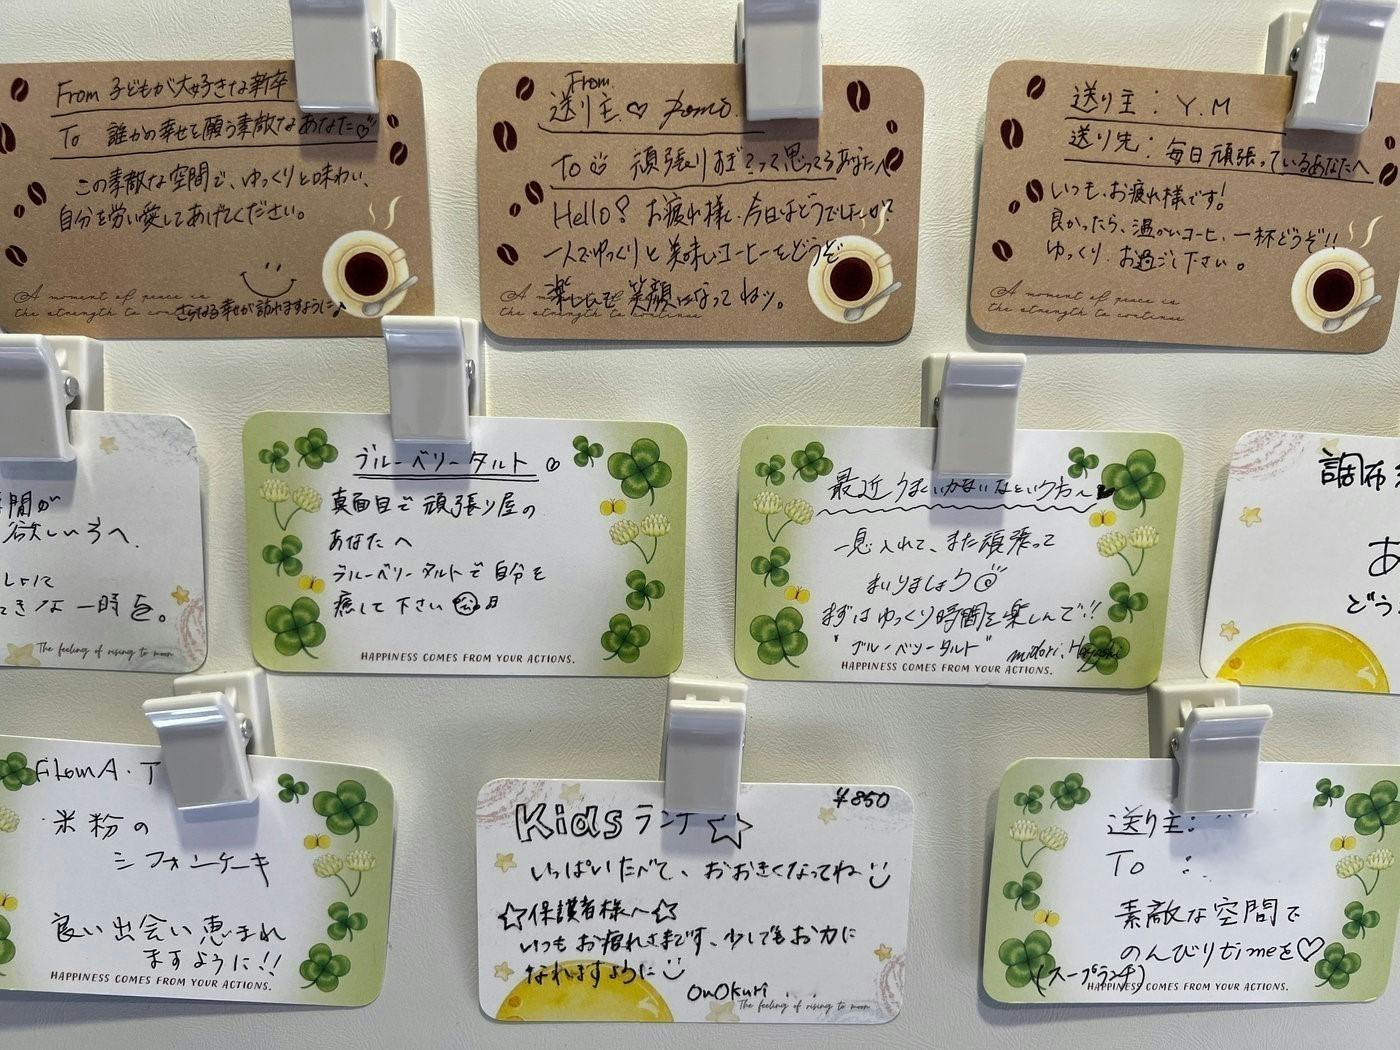 From 子どもが大好きな新卒
To 誰かの幸せを願う素敵なあなた♡
この素敵な空間で、ゆっくりと味わい、
自分を労い愛してあげてください。
さらなる幸せが訪れますように♪
A moment of peace is
the strength to continue
From
送り主♡
To☺ 頑張りすぎ?って思ってるあなたへ
Hello! お疲れ様、今日はどうでしたか?
一人でゆっくりと美味しいコーヒーをどうぞ
楽しんで笑顔になってねッ。
A moment of peace is
the strength to continue
送り主：Y.M
送り先：毎日頑張っているあなたへ
いつも、お疲れ様です!
良かったら、温かいコーヒー、一杯どうぞ!!
ゆっくり、お過ごし下さい。
A moment of peace is
the strength to continue
間が
欲しい方へ
きな一時を。
The feeling of rising to moon
ブルーベリータルト
真面目で頑張り屋の
あなたへ
ブルーベリータルトで自分を
癒して下さい
HAPPINESS COMES FROM YOUR ACTIONS.
最近うまくいかないなという方へ
一息入れて、また頑張って
まいりましょう
まずはゆっくり時間を楽しんで!!
"ブルーベリータルト"
midori.Hayashi
HAPPINESS COMES FROM YOUR ACTIONS.
調布
あ
どう
From A・T
米粉の
シフォンケーキ
良い出会い恵まれ
ますように!!
HAPPINESS COMES FROM YOUR ACTIONS.
¥850
Kidsランチ☆
いっぱいたべて、おおきくなってね
☆保護者様へ☆
いつもお疲れさまです、少しでもお力に
なれますように
OnOkuri
The feeling of rising to moon
送り主：
To：
素敵な空間で
のんびりtimeを♡
(スープランチ)
HAPPINESS COMES FROM YOUR ACTIONS.